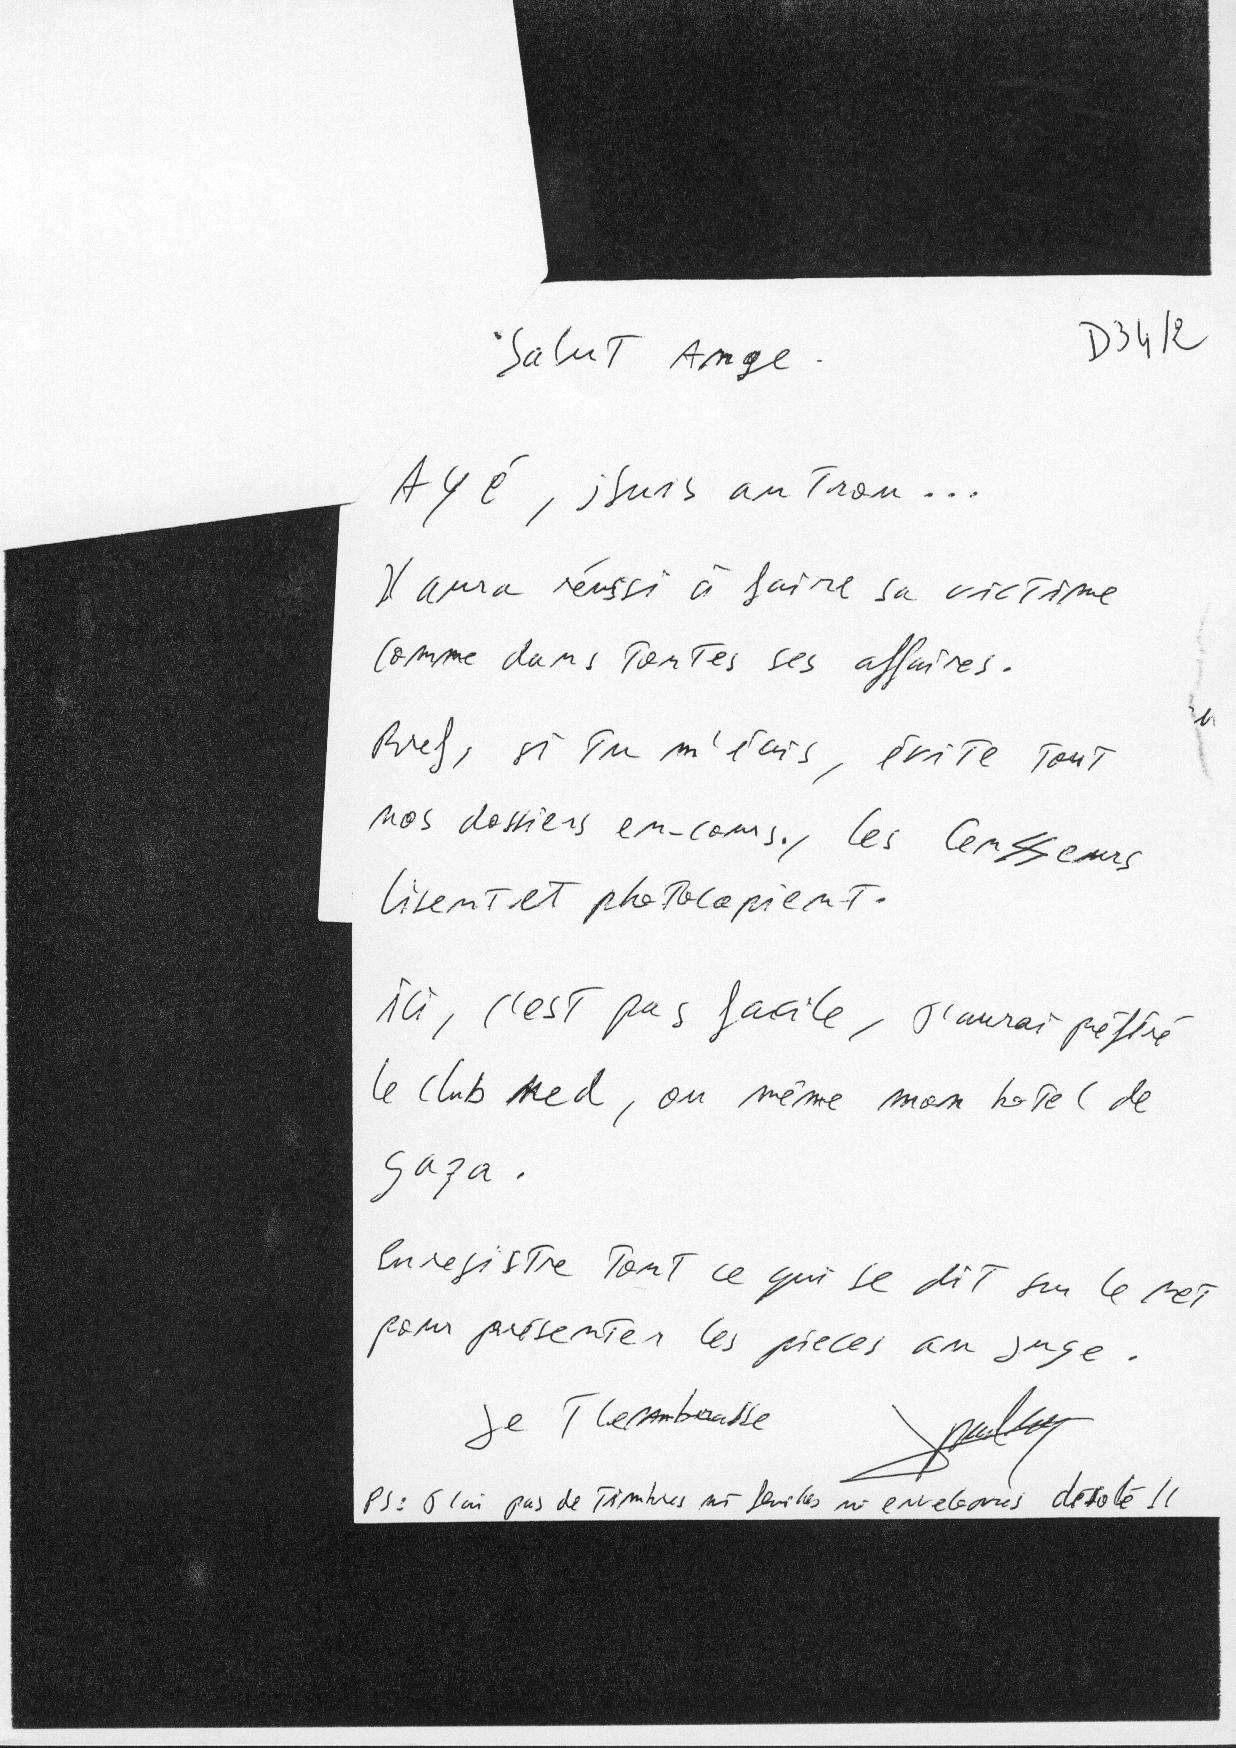 Salut Ange.
D34/2
AYÉ, jsuis au Trou...
Il aura réussi à faire sa victime
comme dans toutes ses affaires.
Bref, si tu m'écris, évite tout
nos dossiers en-cours., les Censseurs
lisent et photocopient.
ici, c'est pas facile, J'aurai préféré
le club Med, ou même mon hotel de
gaza.
Enregistre tout ce qui se dit sur le net
pour présenter les pieces au juge.
Je T'embrasse
PS: J'ai pas de Timbres ni feuilles ni enveloppes désolé !!